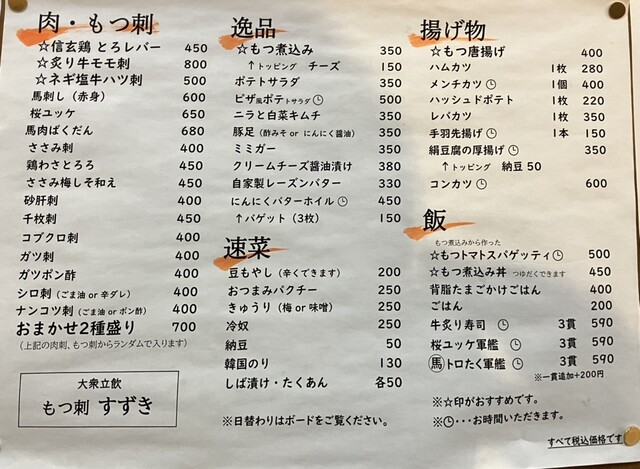 肉・もつ刺
☆信玄鶏 とろレバー 450
☆炙り牛モモ刺 800
☆ネギ塩牛ハツ刺 500
馬刺し（赤身） 600
桜ユッケ 650
馬肉ばくだん 680
ささみ刺 400
鶏わさとろろ 450
ささみ梅しそ和え 450
砂肝刺 400
千枚刺 450
コブクロ刺 400
ガツ刺 400
ガツポン酢 400
シロ刺（ごま油 or 辛ダレ） 400
ナンコツ刺（ごま油 or ポン酢） 400
おまかせ2種盛り 700
（上記の肉刺、もつ刺からランダムで入ります）
大衆立飲
もつ刺 すずき
逸品
☆もつ煮込み 350
↑トッピング チーズ 150
ポテトサラダ 350
ピザ風ポテトサラダ 500
ニラと白菜キムチ 350
豚足（酢みそ or にんにく醤油） 350
ミミガー 350
クリームチーズ醤油漬け 380
自家製レーズンバター 330
にんにくバターホイル 450
↑バゲット（3枚） 150
速菜
豆もやし（辛くできます） 200
おつまみパクチー 250
きゅうり（梅 or 味噌） 250
冷奴 250
納豆 50
韓国のり 130
しば漬け・たくあん 各50
※日替わりはボードをご覧ください。
揚げ物
☆もつ唐揚げ 400
ハムカツ 1枚 280
メンチカツ 1個 400
ハッシュドポテト 1枚 220
レバカツ 1枚 350
手羽先揚げ 1本 150
絹豆腐の厚揚げ 350
↑トッピング 納豆 50
コンカツ 600
飯
もつ煮込みから作った
☆もつトマトスパゲッティ 500
☆もつ煮込み丼 つゆだくできます 450
背脂たまごかけごはん 400
ごはん 200
牛炙り寿司 3貫 590
桜ユッケ軍艦 3貫 590
馬トロたく軍艦 3貫 590
※一貫追加+200円
※☆印がおすすめです。
※・・・お時間いただきます。
すべて税込価格です